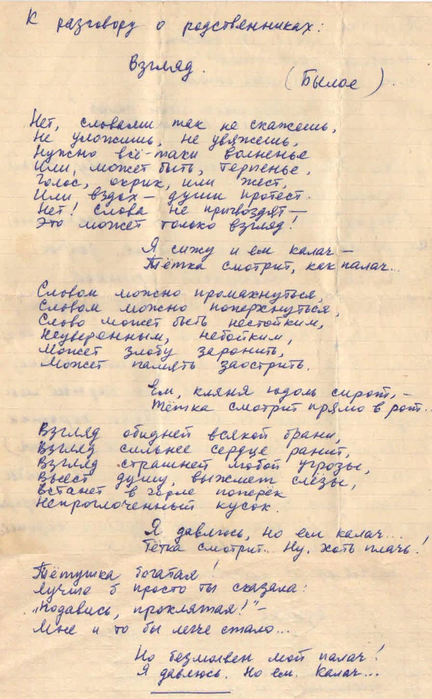 К разговору о родственниках:
Взгляд.
(Былое).
Нет, словами так не скажешь,
Не уложишь, не увяжешь,
Нужно всё-таки волненье
Или, может быть, терпенье,
Голос, окрик, или жест,
Или вздох — души протест.
Нет! Слова не пригвоздят —
Это может только взгляд!
Я сижу и ем калач —
Тётка смотрит, как палач...
Словом можно промахнуться,
Словом можно поперхнуться,
Слово может быть нестойким,
Неуверенным, небойким,
Может злобу заронить,
Может память заострить.
Ем, кляня юдоль сирот, —
Тётка смотрит прямо в рот...
Взгляд обидней всякой брани,
Взгляд сильнее сердце ранит,
Взгляд страшней любой угрозы,
Выест душу, выжмет слёзы,
Встанет в горле поперёк
Непроглоченный кусок.
Я давлюсь, но ем калач...
Тётка смотрит... Ну, хоть плачь!
Тётушка богатая!
Лучше б просто ты сказала:
„Подавись, проклятая!" —
Мне и то бы легче стало...
Но безмолвен мой палач!
Я давлюсь. Но ем. Калач...